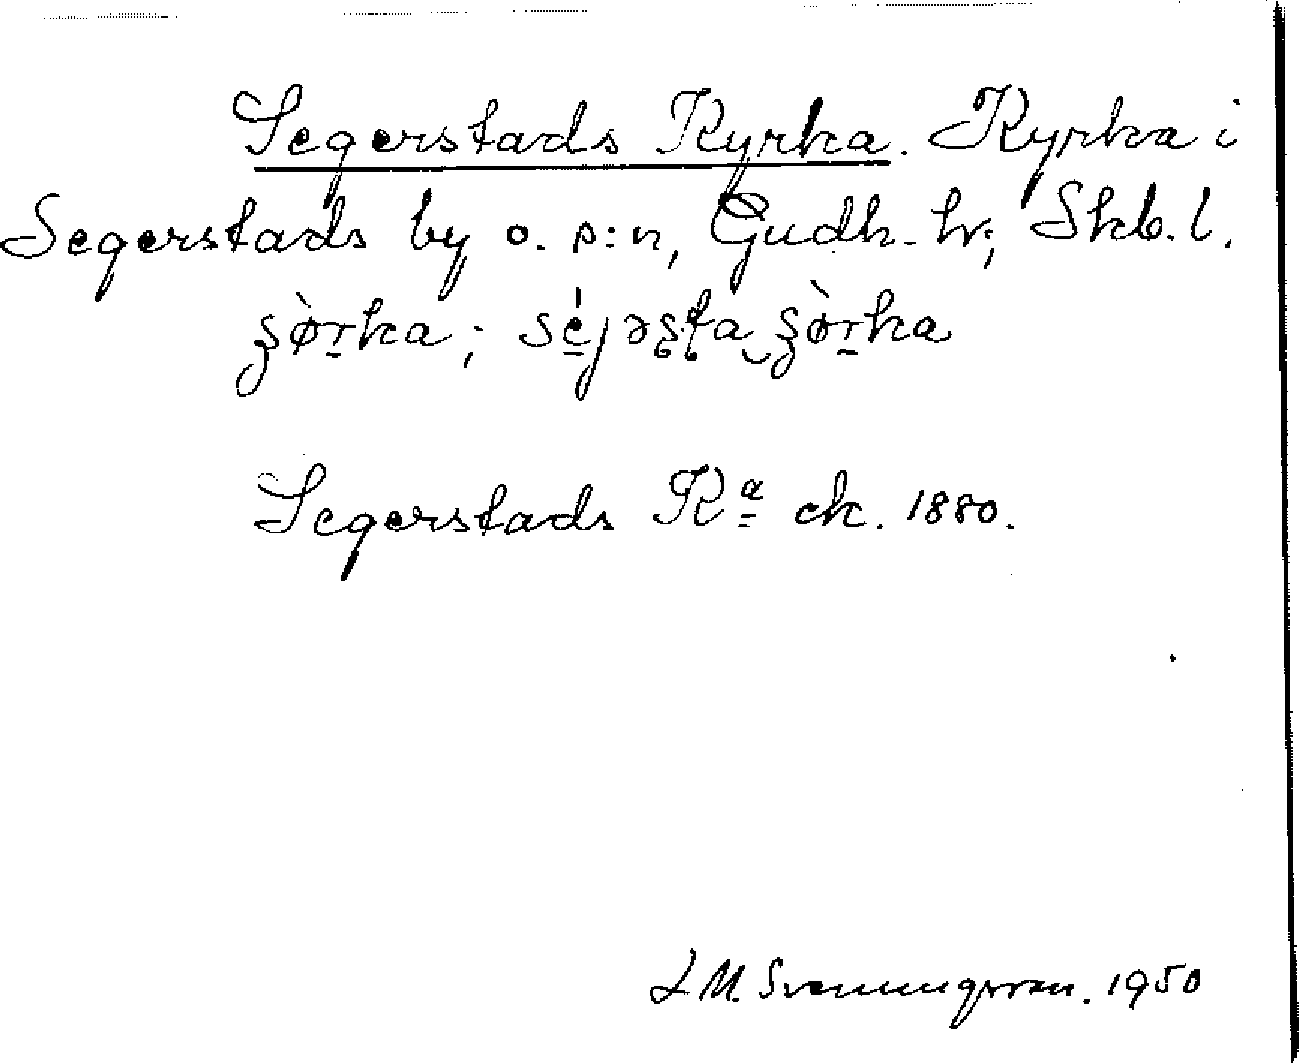 Segerstads Kyrka. Kyrka i
Segerstads by o. s:n, Gudh. hr; Skb. l.
ʂø̀r̠ka; sé̠jəʂʈa ʂø̀r̠ka
Segerstads Kª ek. 1880.
L M. Svenungsson. 1950